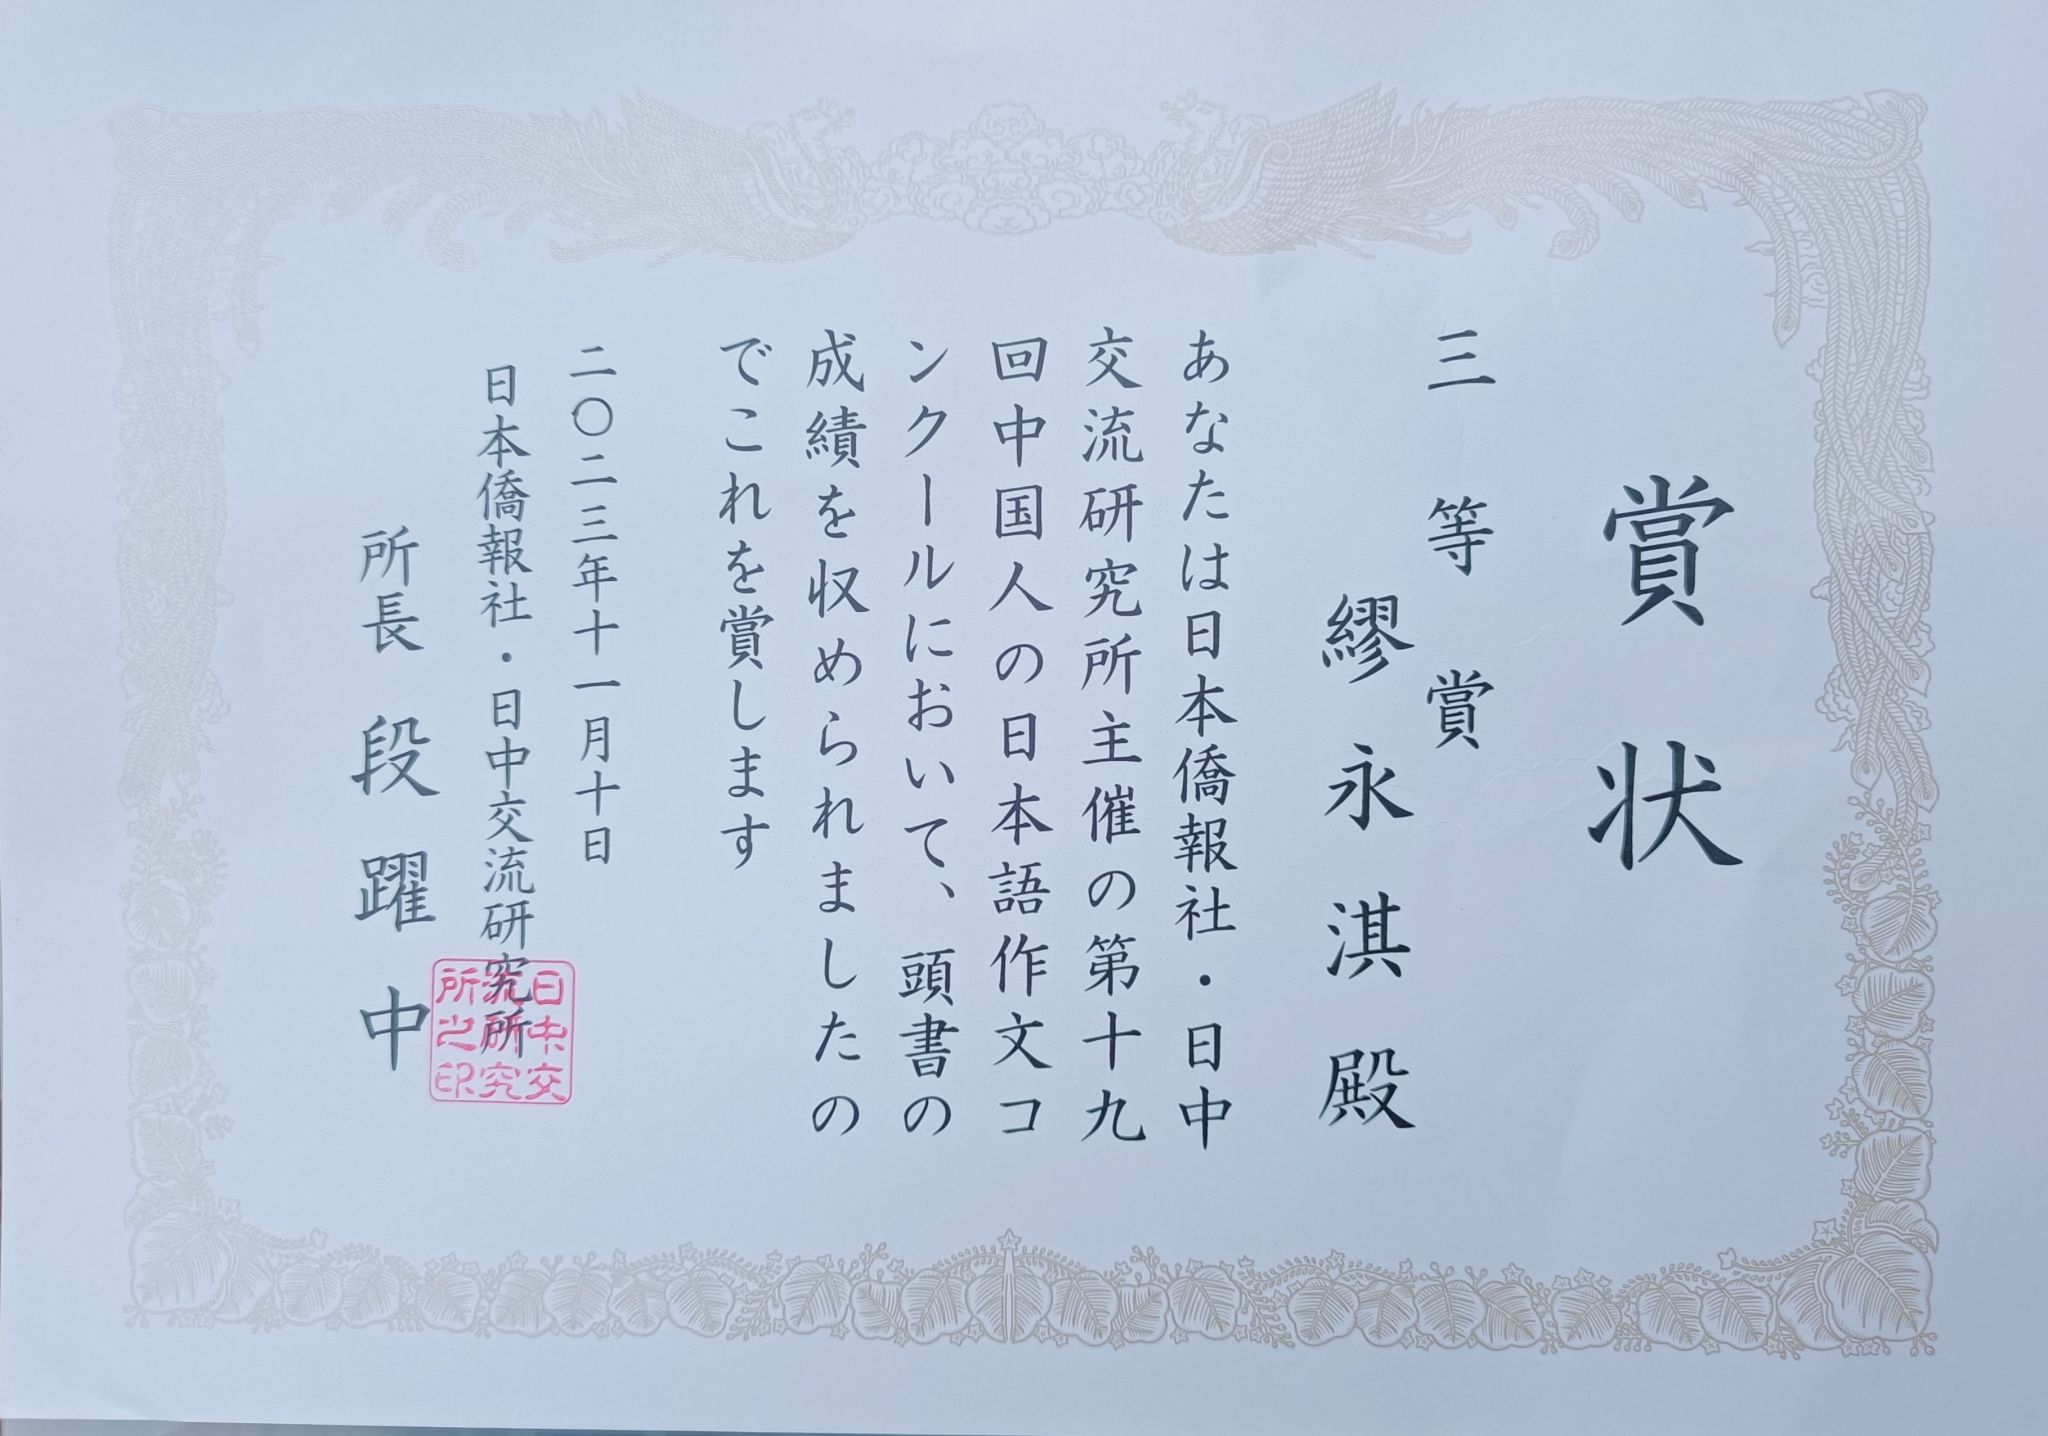 賞状
三等賞
繆永淇殿
あなたは日本僑報社・日中
交流研究所主催の第十九
回中国人の日本語作文コ
ンクールにおいて、頭書の
成績を収められましたの
でこれを賞します
二〇二三年十一月十日
日本僑報社・日中交流研究所
所長 段躍中
日中交
流研究
所之印